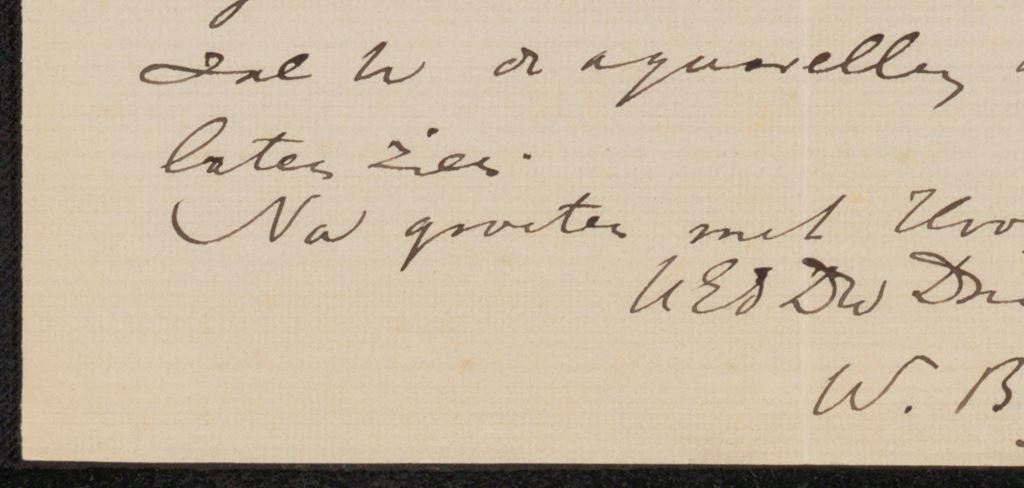 Zal U de aquarellen
laten zien.
Na groeten met Hoo
UEd Dw Dri
W. B